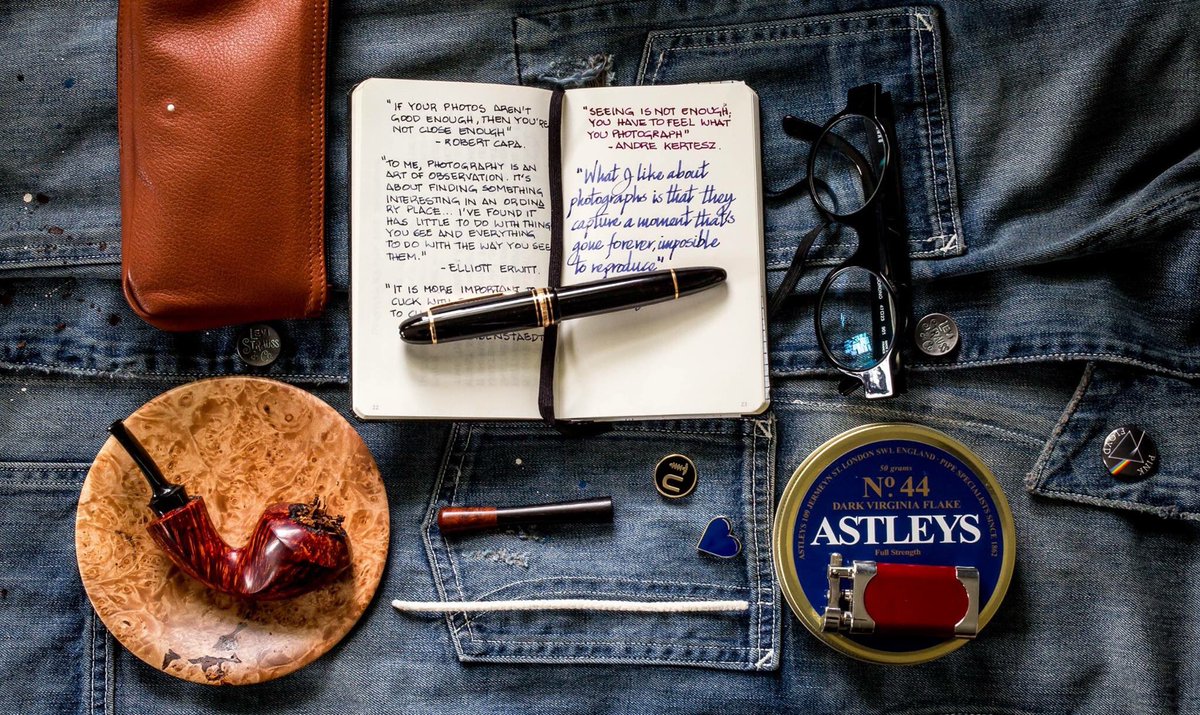 "IF YOUR PHOTOS AREN'T
GOOD ENOUGH, THEN YOU'RE
NOT CLOSE ENOUGH"
- ROBERT CAPA.
"TO ME, PHOTOGRAPHY IS AN
ART OF OBSERVATION. IT'S
ABOUT FINDING SOMETHING
INTERESTING IN AN ORDINA
RY PLACE... I'VE FOUND IT
HAS LITTLE TO DO WITH THINGS
YOU SEE AND EVERYTHING
TO DO WITH THE WAY YOU SEE
THEM."
- ELLIOTT ERWITT.
"IT IS MORE IMPORTANT TO
CLICK WITH
TO
22
"SEEING IS NOT ENOUGH;
YOU HAVE TO FEEL WHAT
YOU PHOTOGRAPH"
- ANDRE KERTESZ.
"What I like about
photographs is that they
capture a moment that's
gone forever, imposible
to reproduce"
23
LEVI STRAUSS
& Co.
PINK FLOYD
U
ASTLEYS 109 JERMEYN ST. LONDON SW1, ENGLAND - PIPE SPECIALISTS SINCE 1862
50 grams
No. 44
DARK VIRGINIA FLAKE
ASTLEYS
Full Strength